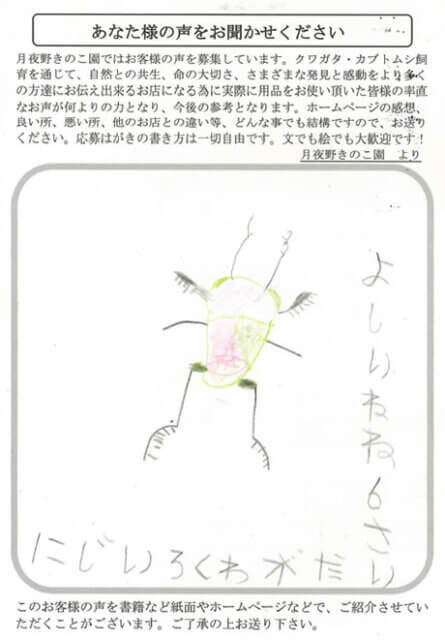 あなた様の声をお聞かせください
月夜野きのこ園ではお客様の声を募集しています。クワガタ・カブトムシ飼
育を通じて、自然との共生、命の大切さ、さまざまな発見と感動をより多く
の方達にお伝え出来るお店になる為に実際に用品をお使い頂いた皆様の率直
なお声が何よりの力となり、今後の参考となります。ホームページの感想、
良い所、悪い所、他のお店との違い等、どんな事でも結構ですので、お送り
ください。応募はがきの書き方は一切自由です。文でも絵でも大歓迎です！
月夜野きのこ園　より
6さい
にじいろくわがた
このお客様の声を書籍など紙面やホームページなどで、ご紹介させてい
ただくことがございます。ご了承の上お送り下さい。